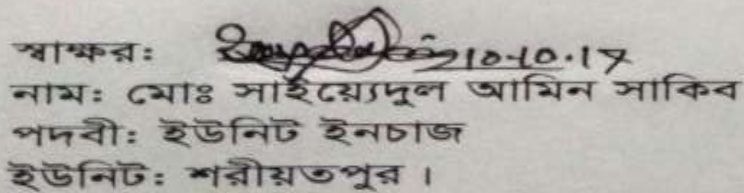 স্বাক্ষর: 10-10-17
নাম: মোঃ সাইয়্যেদুল আমিন সাকিব
পদবী: ইউনিট ইনচাজ
ইউনিট: শরীয়তপুর।